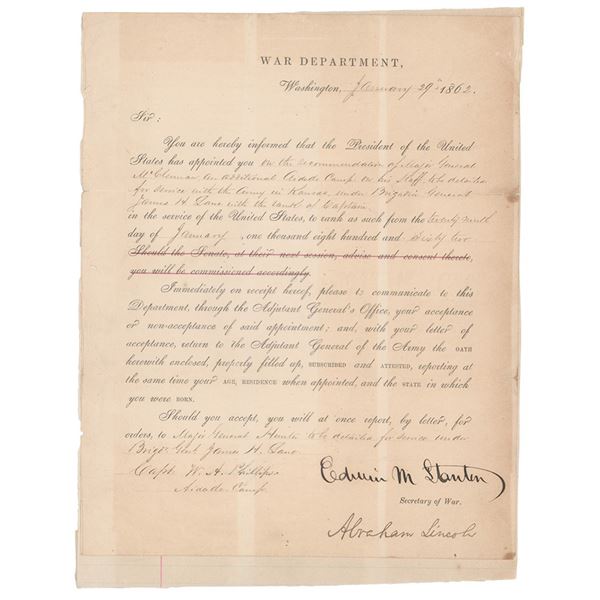 WAR DEPARTMENT,
Washington, January 29th 1862.
Sir:
You are hereby informed that the President of the United
States has appointed you on the recommendation of Major General
McClennan, an additional Aidade Camp on his Staff, to be detailed
for service with the Army in Kansas under Brigadier General
James H. Lane with the rank of Captain,
in the service of the United States, to rank as such from the twenty ninth
day of January, one thousand eight hundred and sixty two.
Should the Senate, at their next session, advise and consent thereto,
you will be commissioned accordingly.
Immediately on receipt hereof, please to communicate to this
Department, through the Adjutant General's Office, your acceptance
or non-acceptance of said appointment; and, with your letter of
acceptance, return to the Adjutant General of the Army the OATH
herewith enclosed, properly filled up, SUBSCRIBED and ATTESTED, reporting at
the same time your AGE, RESIDENCE when appointed, and the STATE in which
you were BORN.
Should you accept, you will at once report, by letter, for
orders, to Major General Hunter to be detailed for service under
Brigr Genl James H. Lane
Capt W. A. Phillips
Aidade Camp
Edwin M Stanton
Secretary of War.
Abraham Lincoln